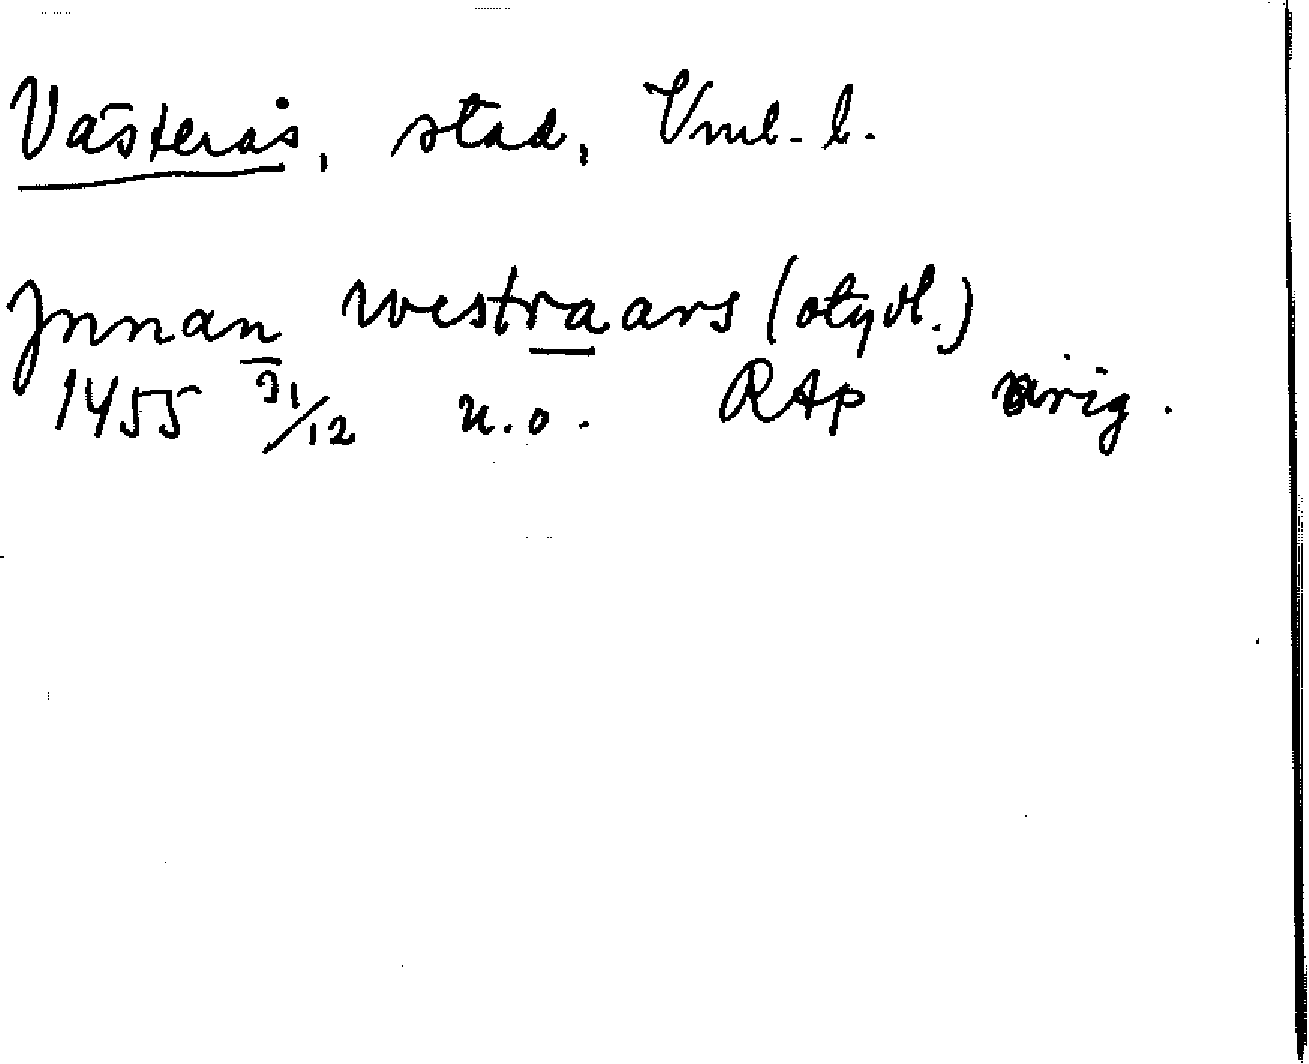 Västerås, stad, Vml. l.
Jnnan westraars (otydl.)
1455 31/12 u.o. RAp orig.